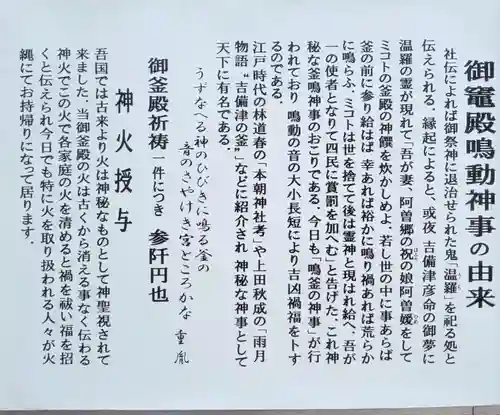 御竈殿鳴動神事の由来
社伝によれば御祭神に退治せられた鬼「温羅」を祀る処と
伝えられる、縁起によると、或夜 吉備津彦命の御夢に
温羅の霊が現れて「吾が妻、阿曽郷の祝の娘阿曽媛をして
ミコトの釜殿の神饌を炊かしめよ、若し世の中に事あらば
釜の前に参り給はば 幸あれば裕かに鳴り禍あれば荒らか
に鳴らふ、ミコトは世を捨てて後は霊神と現はれ給へ、吾が
一の使者となりて四民に賞罰を加へむ」と告げた、これ神
秘な釜鳴神事のおこりである、今日も「鳴釜の神事」が行
われており 鳴動の音の大小長短により吉凶禍福を卜す
るのである。
江戸時代の林道春の「本朝神社考」や上田秋成の「雨月
物語〝吉備津の釜〟」などに紹介され 神秘な神事として
天下に有名である。
うずなへる神のひびきに鳴る釜の
音のさやけき宮ところかな 重胤
御釜殿祈祷 一件につき 参阡円也
神火授与
吾国では古来より火は神秘なものとして神聖視されて
来ました．当御釜殿の火は古くから消える事なく伝わる
神火でこの火で各家庭の火を清めると禍を祓い福を招
くと伝えられ今日でも特に火を取り扱われる人々が火
縄にてお持帰りになって居ります．